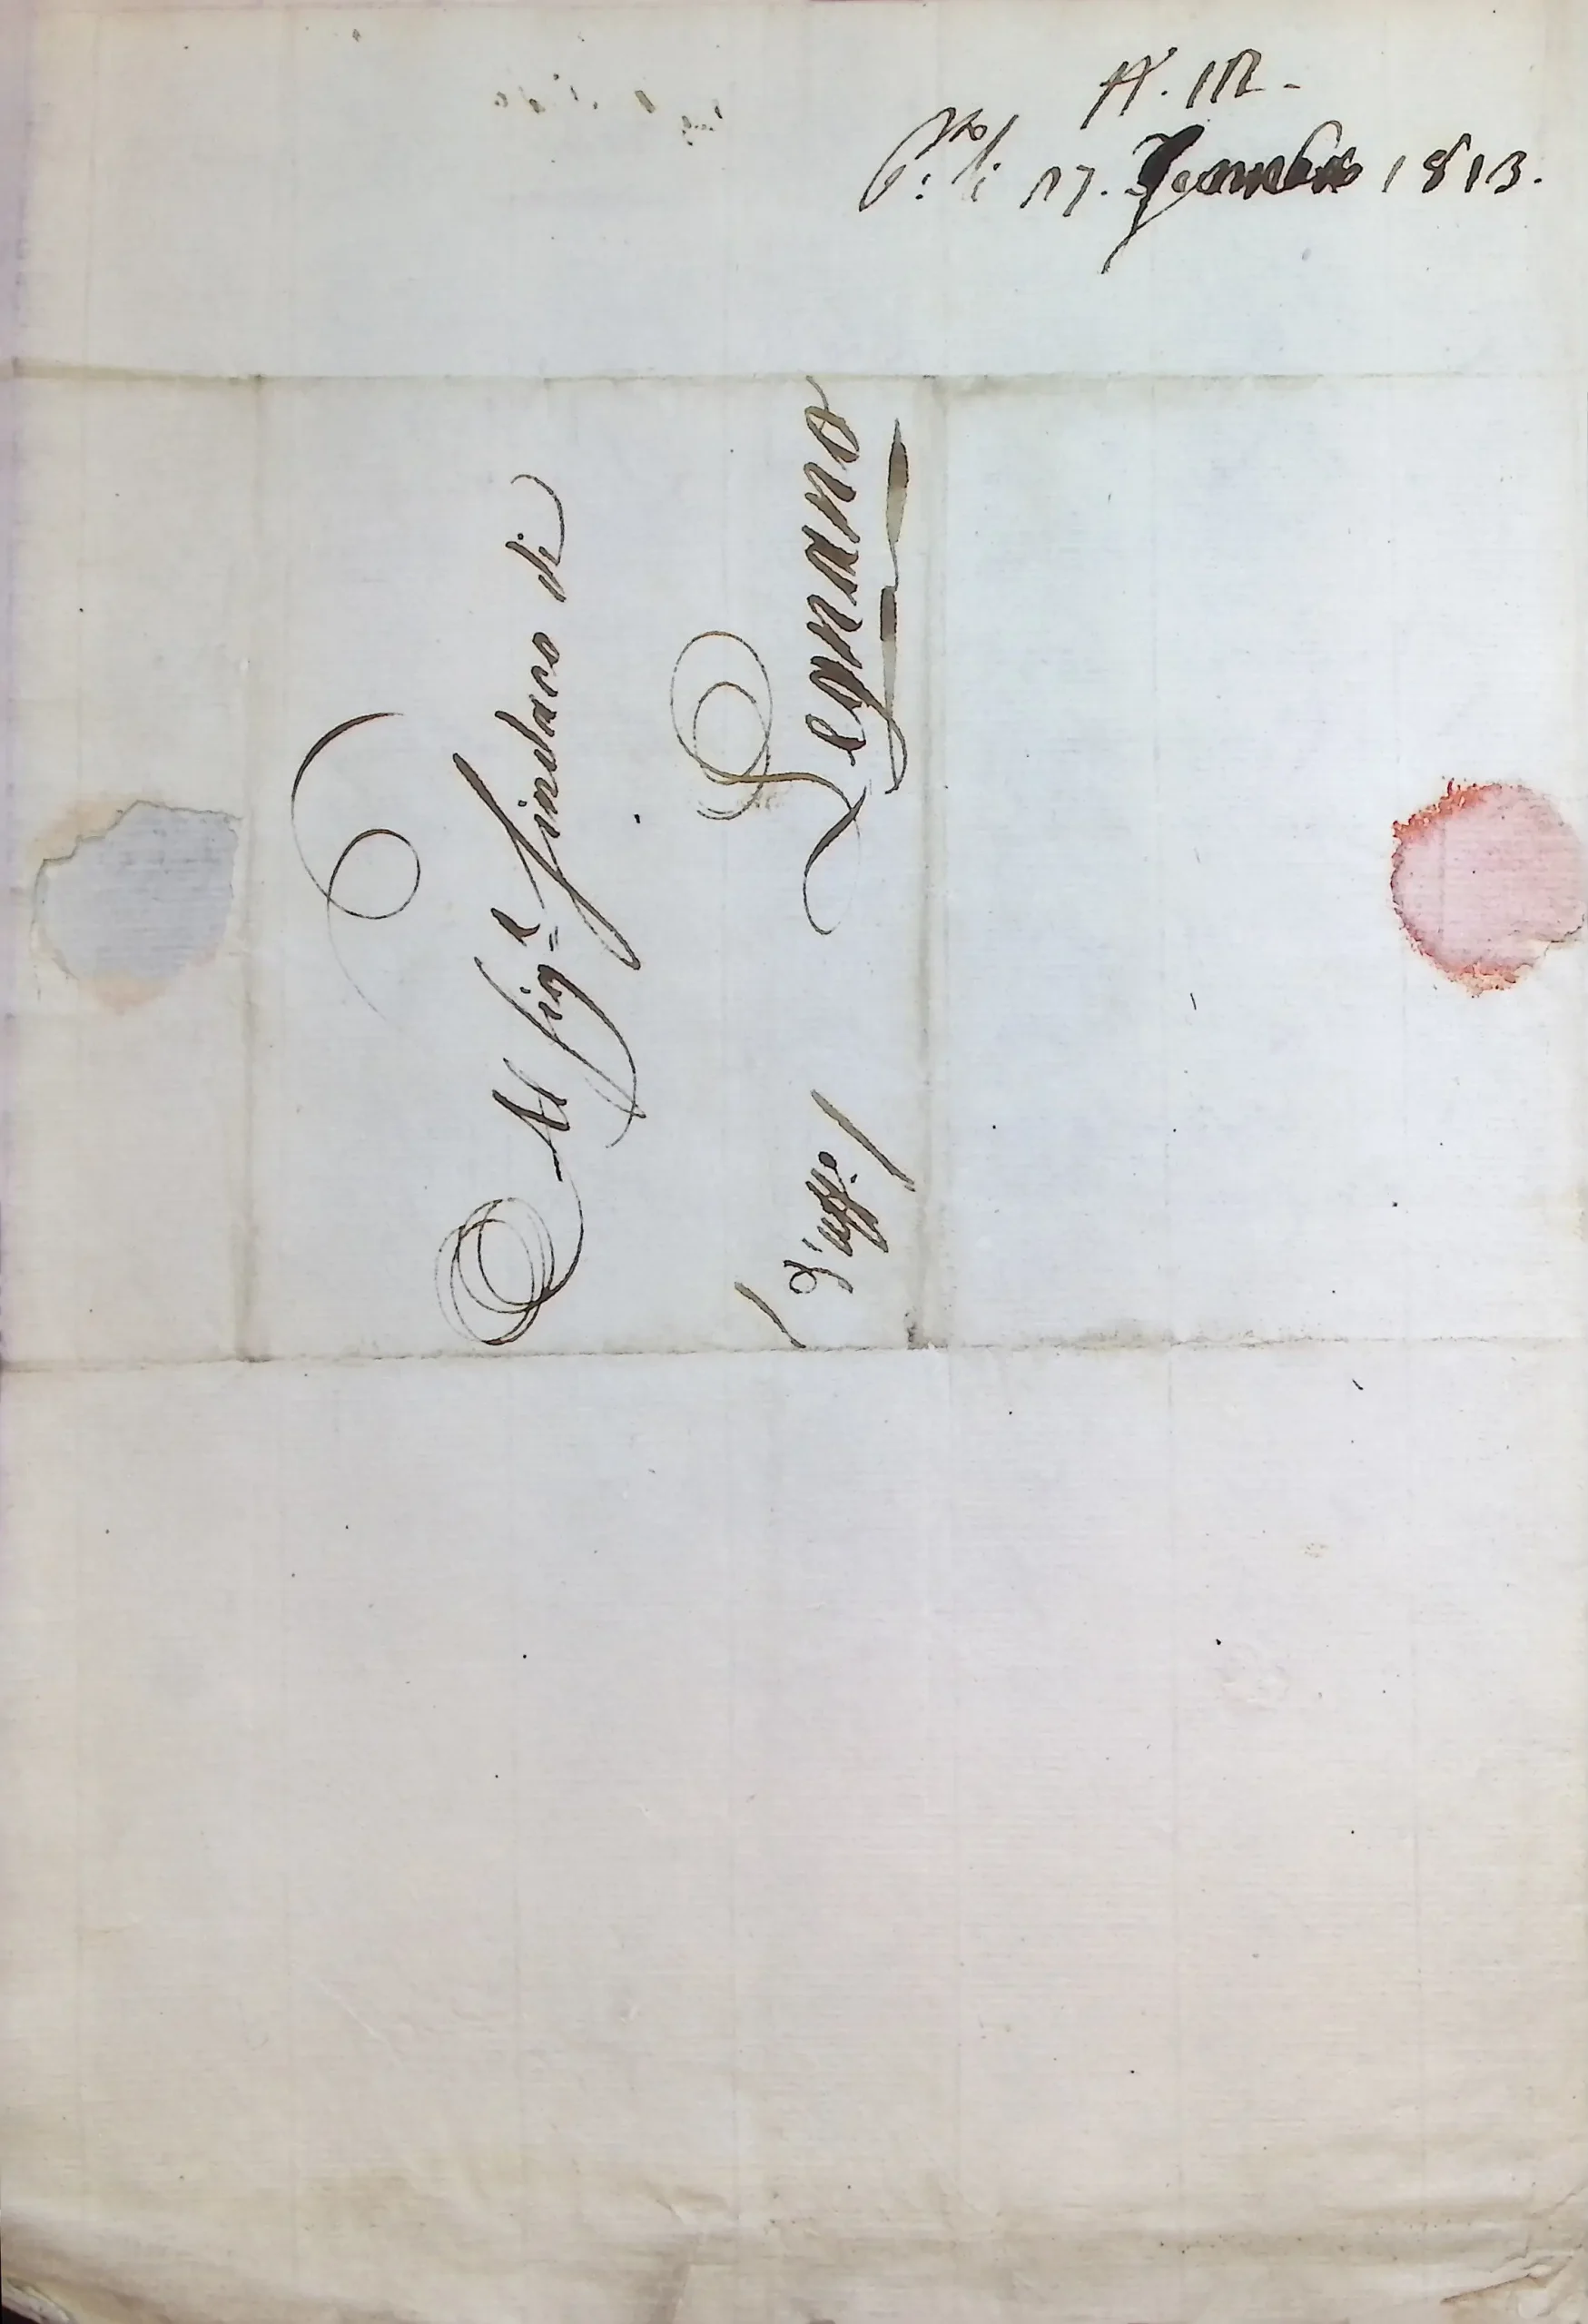 A. 112.
P.to li 17. 1813.
Al Sig.r Sindaco di
Legnano
(D'uff.o)